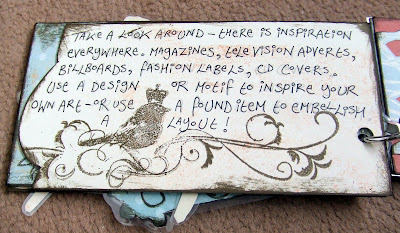 TAKE A LOOK AROUND - THERE IS INSPIRATION
EVERYWHERE. MAGAZINES, TELEVISION ADVERTS,
BILLBOARDS, FASHION LABELS, CD COVERS.
USE A DESIGN OR MOTIF TO INSPIRE YOUR
OWN ART - OR USE A FOUND ITEM TO EMBELLISH
A LAYOUT!